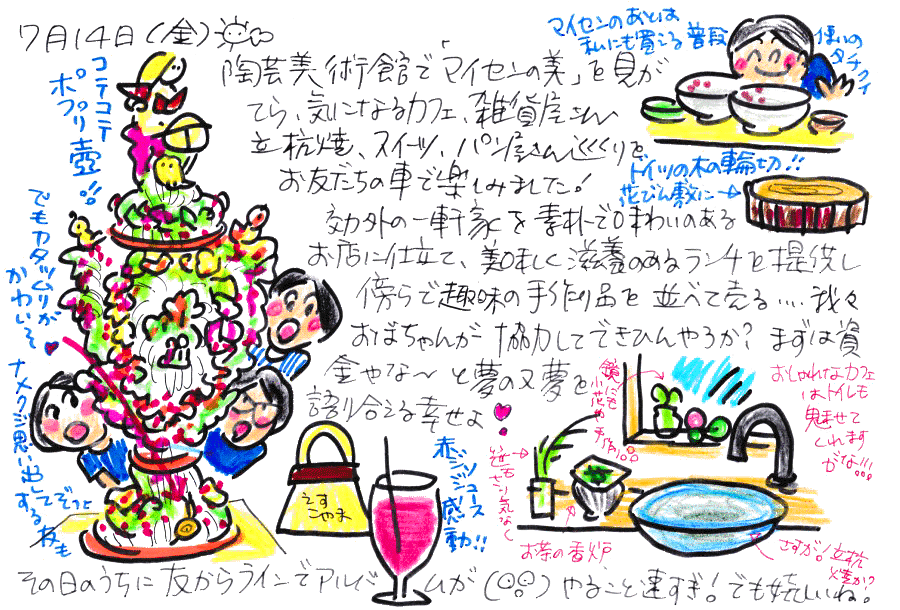 7月14日(金)
陶芸美術館で「マイセンの美」を見が
てら、気になるカフェ、雑貨屋さん
立杭焼、スイーツ、パン屋さん巡りを
お友だちの車で楽しみました!
郊外の一軒家を素朴で味わいのある
お店に仕立て、美味しく滋養のあるランチを提供し
傍らで趣味の手作り品を並べて売る....我々
おばちゃんが協力してできひんやろか?まずは資
金やな〜と夢の又夢を
語り合える幸せよ
その日のうちに友からラインでアルバムが
やること速すぎ!でも嬉しいね!
コテコテ
ポプリ壺!!
でもカタツムリが
かわいそ
ナメクジ思い出してぞっと
する友も
マイセンのあとは
私にも買える普段
使いの
タチクイ
ドイツの木の輪切!!
花びん敷に→
えす
こやま
赤ジソジュース
感動!!
鏡にも
小花や
笹も
さり気なく
お茶の香炉
おしゃれなカフェ
はトイレも
魅せて
くれます
がな!!!
さすが!立杭
焼か?